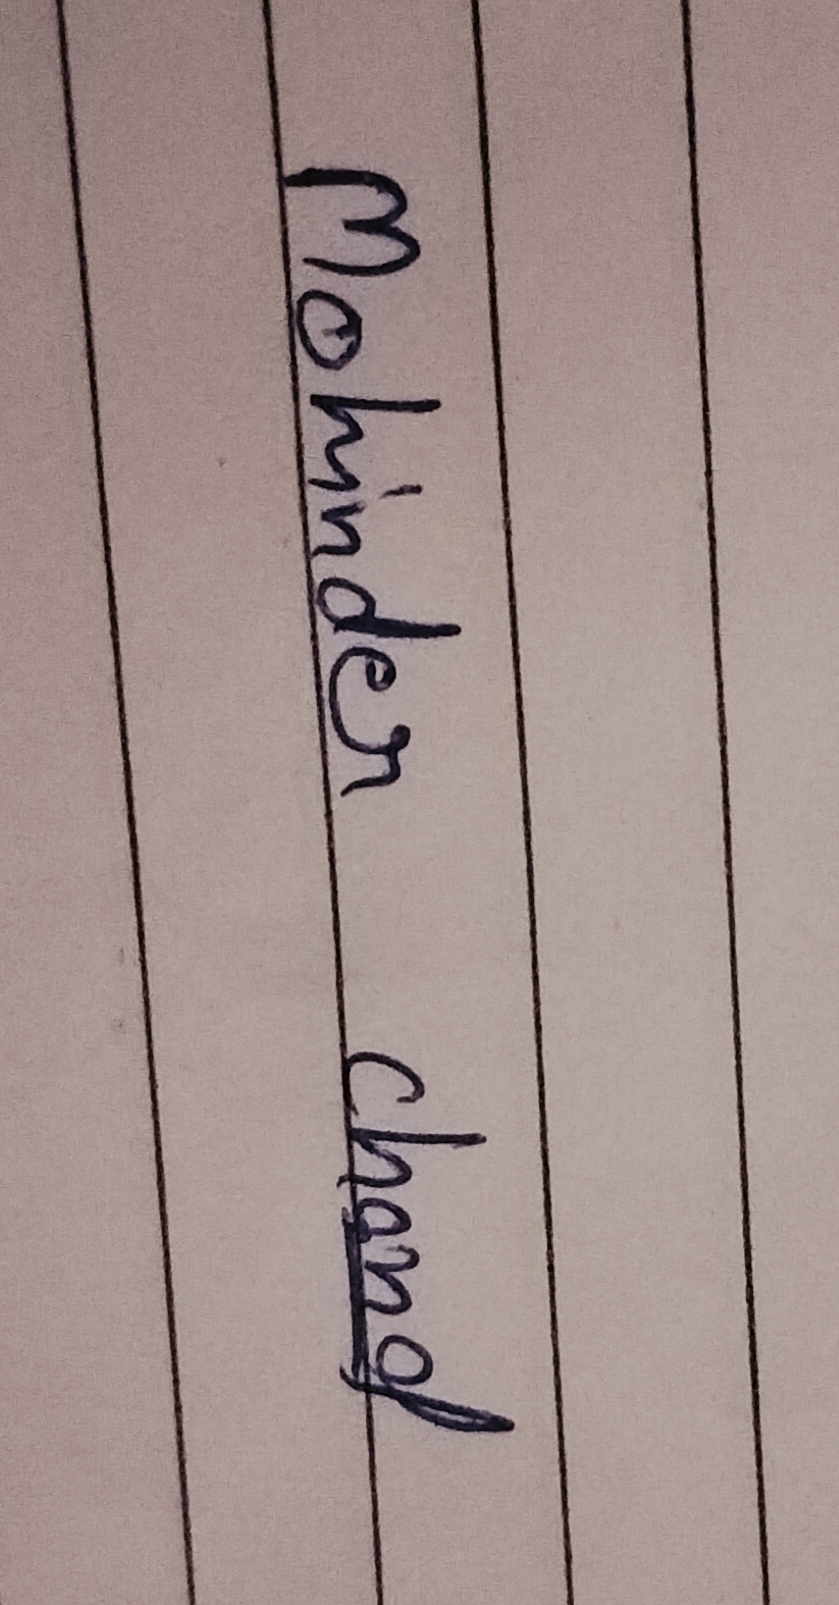 Mohinder chand